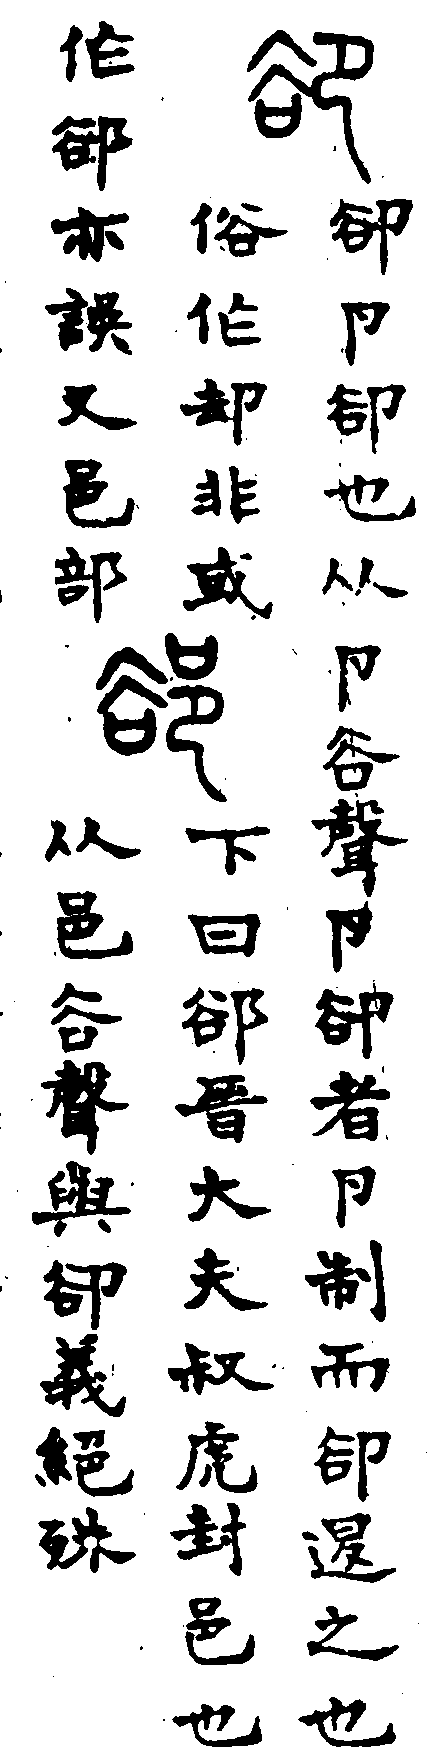 卻
卻卩卻也从卩谷聲卩卻者卩制而卻退之也
俗作却非或
作郤亦誤又邑部
郤
下曰郤晉大夫叔虎封邑也
从邑谷聲與卻義絕殊